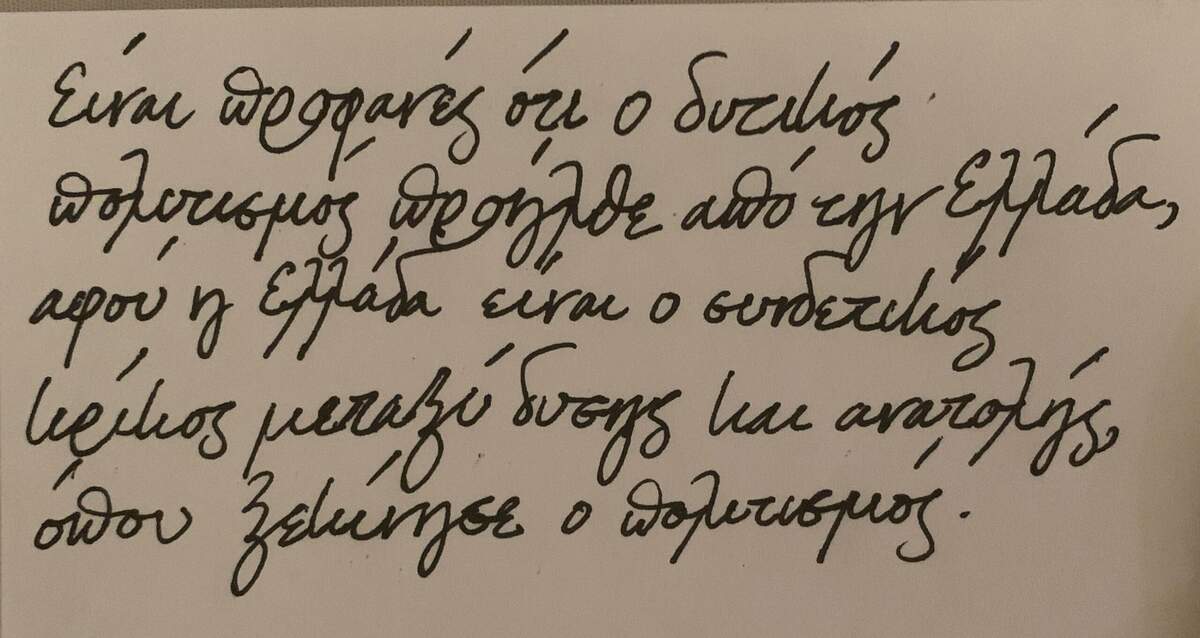 Είναι προφανές ότι ο δυτικός
πολιτισμός προήλθε από την Ελλάδα,
αφού η Ελλάδα είναι ο συνδετικός
κρίκος μεταξύ δύσης και ανατολής,
όπου ξεκίνησε ο πολιτισμός.